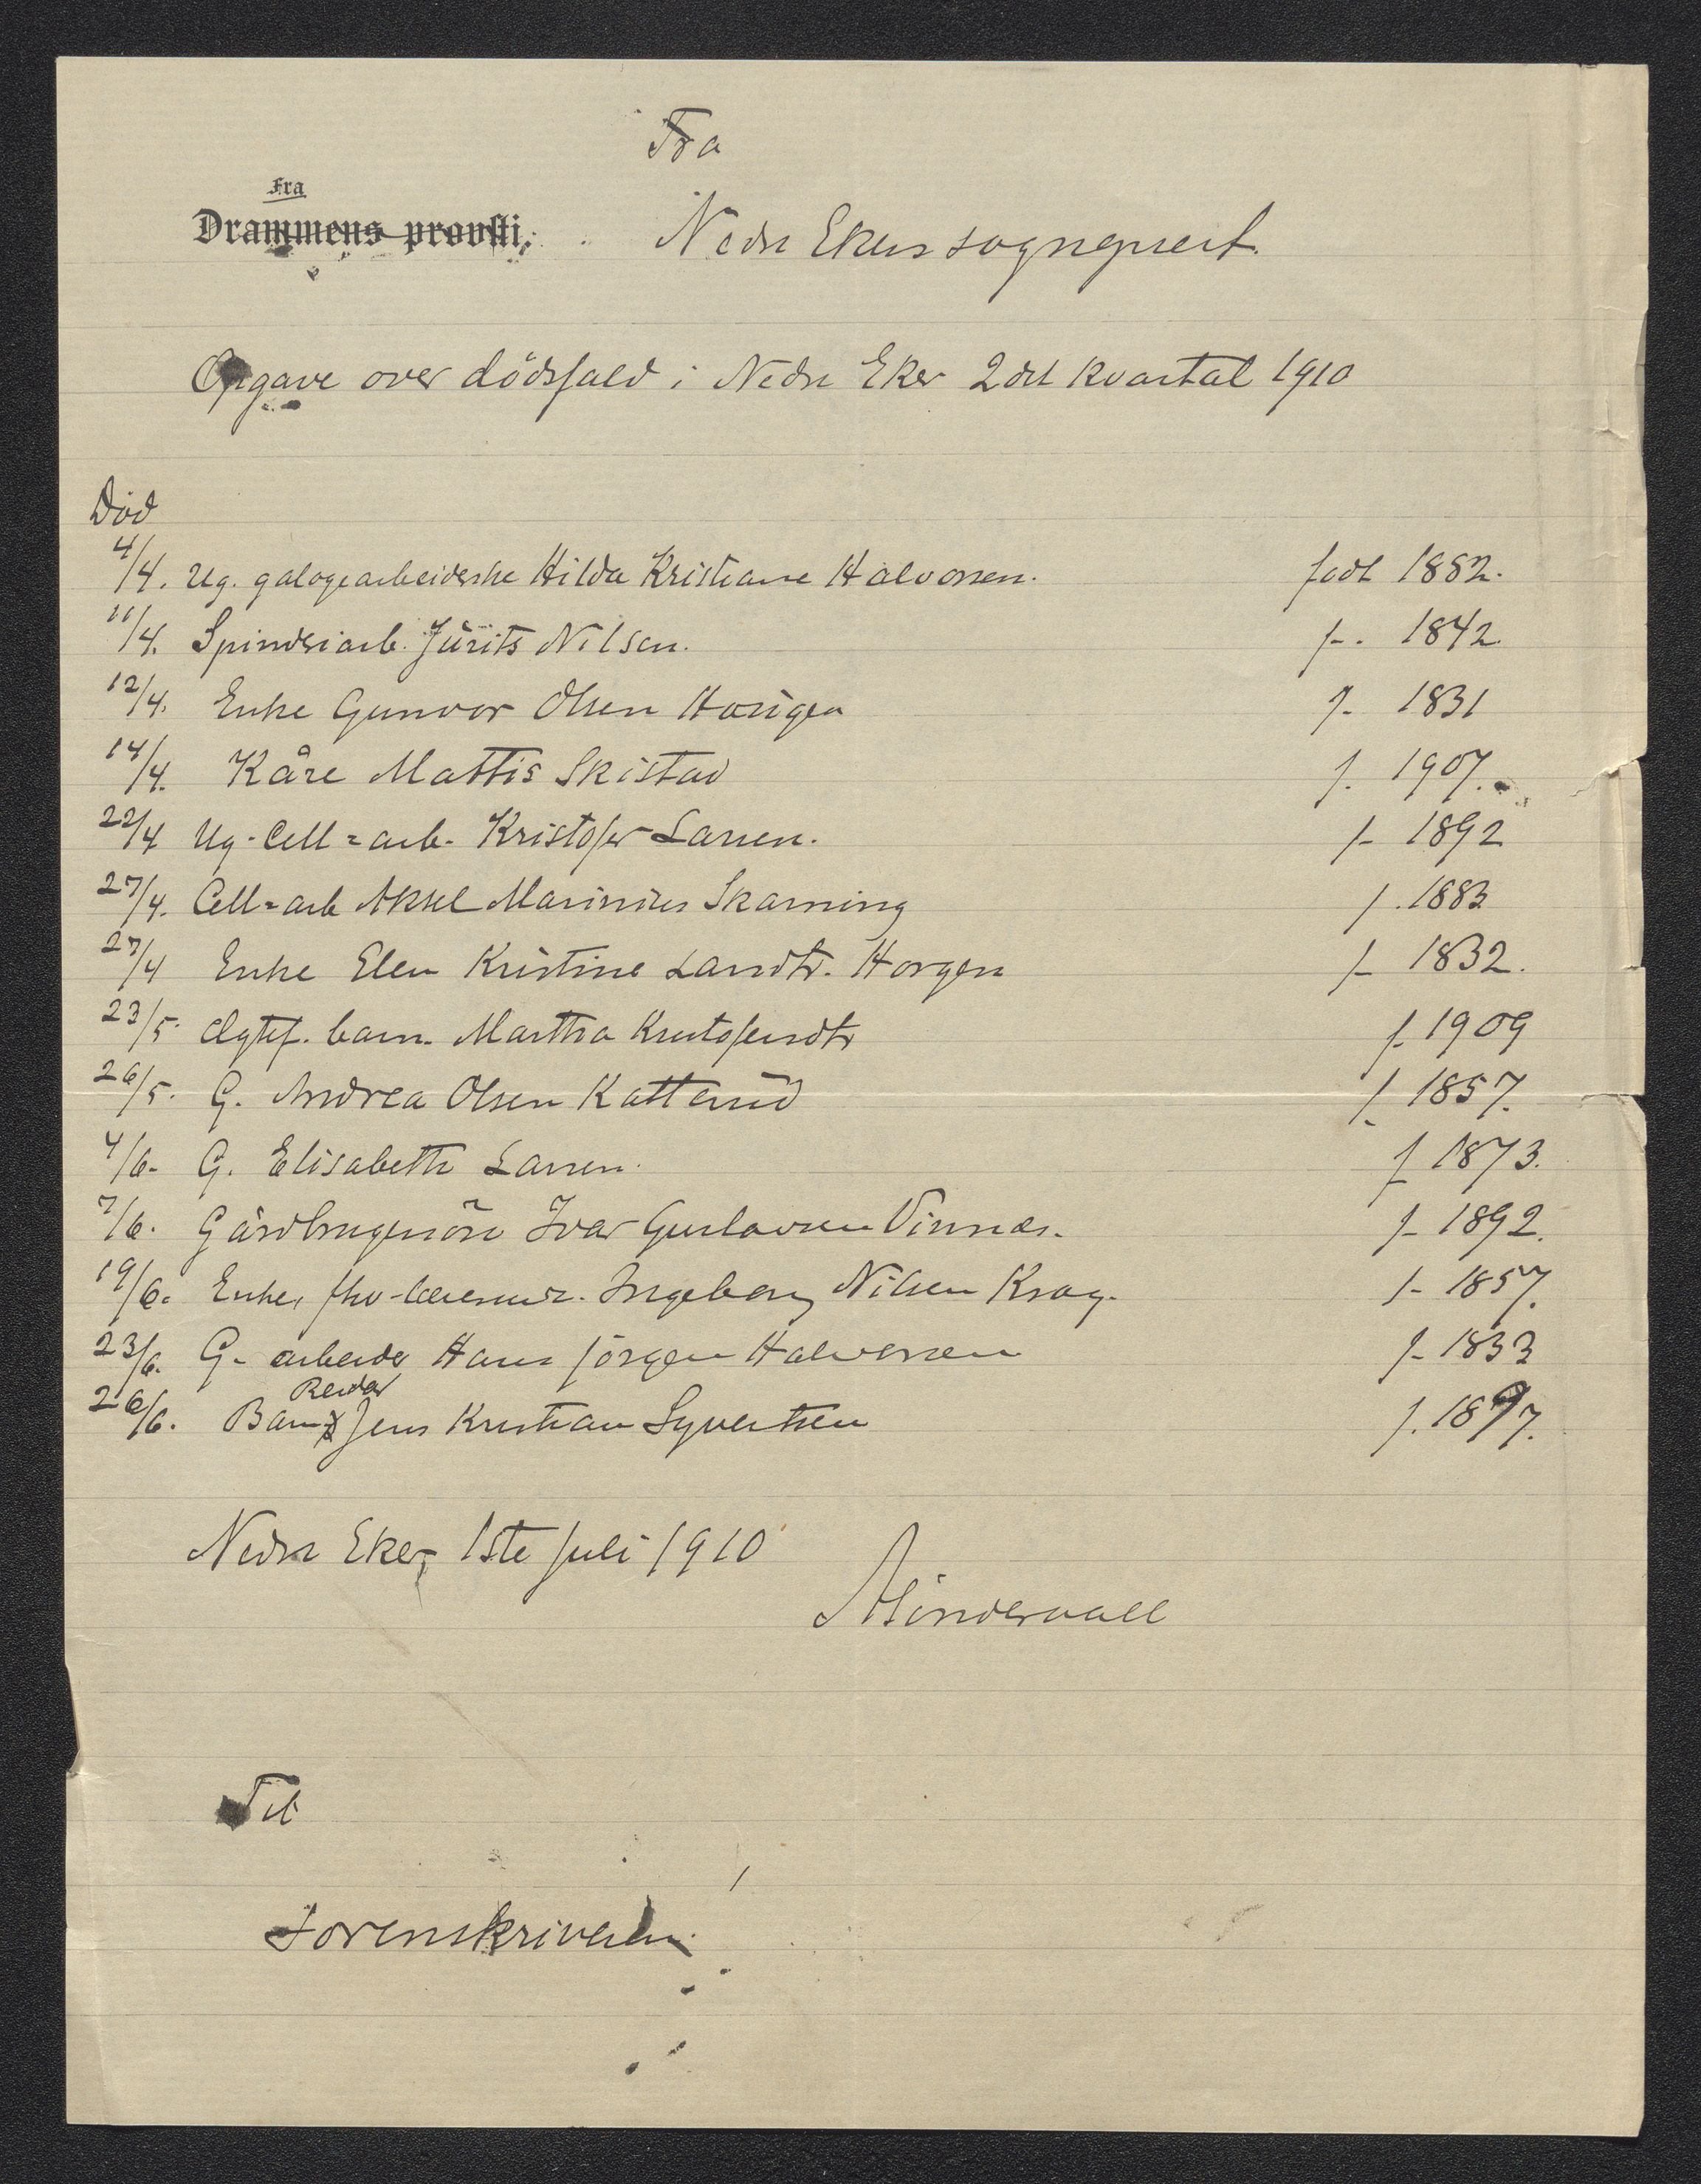 Fra
Fra
Drammens provsti. Nedre Ekers sogneprest.
Opgave over dödsfald i Nedre Eker 2det kvartal 1910
Död
4/4. Ug. galogearbeiderske Hilda Kristiane Halvorsen. født 1882.
11/4. Spinneriarb. Jürits Nilsen. f. 1842.
12/4. Enke Gunvor Olsen Horgen f. 1831
14/4. Kåre Mattis Skistad f. 1907.
22/4 Ug. Cell=arb. Kristofer Larsen. f. 1892
27/4. Cell=arb Aksel Marinius Skarning f. 1883
27/4 Enke Elen Kristine Larsdtr. Horgen f. 1832.
23/5. Ægtef. barn. Martha Kristofersdtr f. 1909
26/5. G. Andrea Olsen Katterud f. 1857.
4/6. G. Elisabeth Larsen. f. 1873.
7/6. Gårdbrugersön Ivar Gustavsen Vinnes. f. 1892.
19/6. Enke, Ingeborg Nilsen Krog. f. 1857.
23/6. G. arbeider Hans Jörgen Halvorsen f. 1833
26/6. Barn Reidar Jens Kristian Syvertsen f. 1897.
Nedre Eker, 1ste juli 1910
Mindervall
Til
Sorenskriveren.